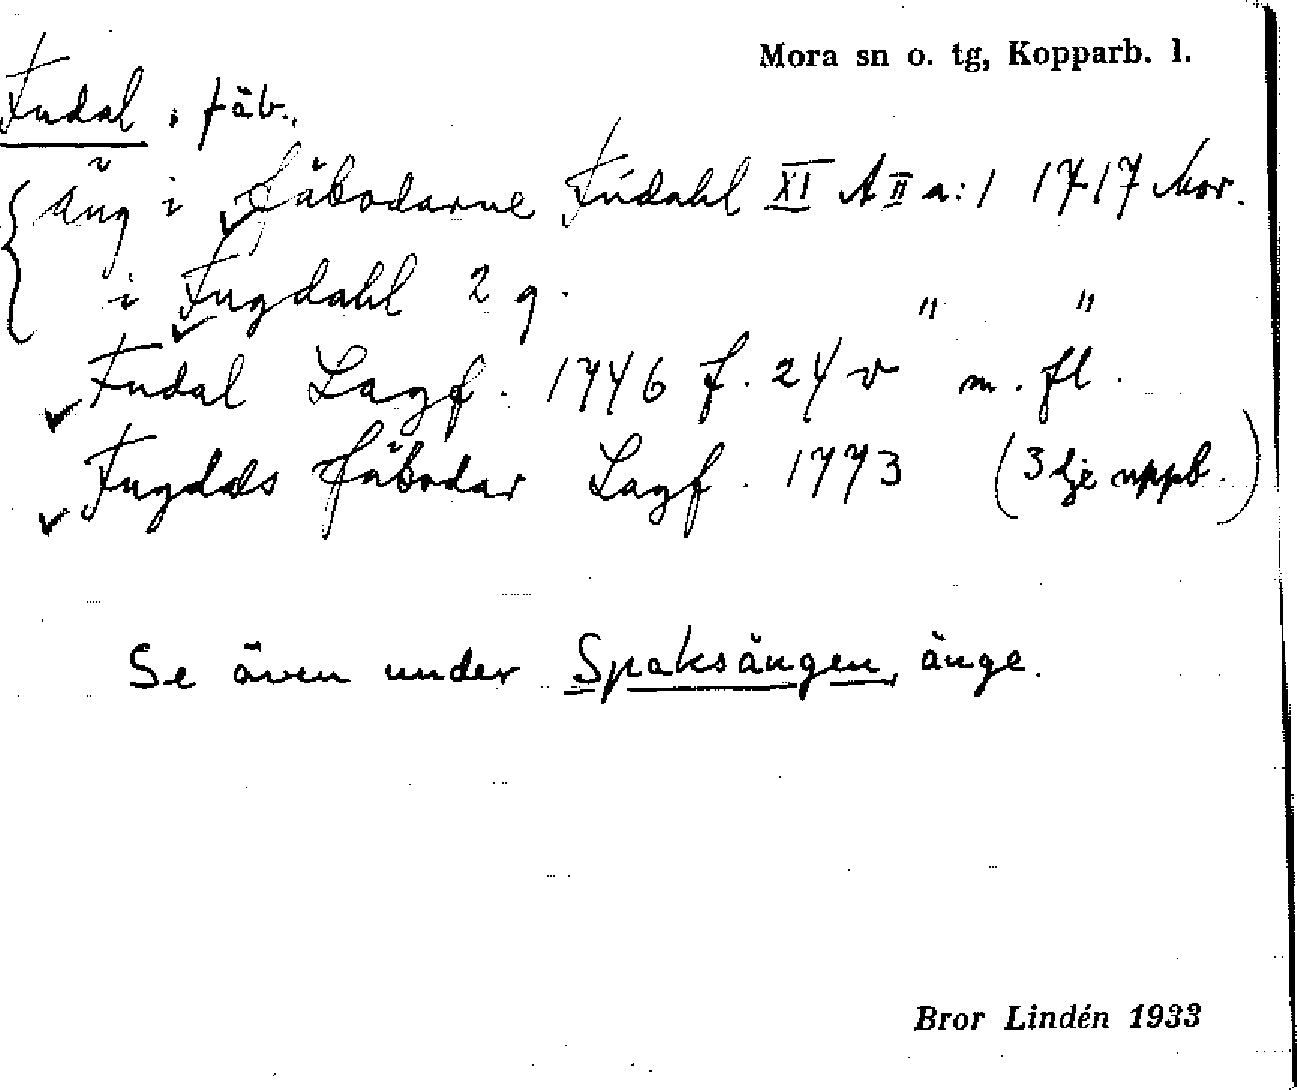 Mora sn o. tg, Kopparb. l.
Fudal, fäb.
äng i Fäbodarne Fúdahl XI A II a:1 1717 Mor.
i Fugdahl 2 g. " "
Fudal Lagf. 1746 f. 24 v m. fl.
Fugdals Fäbodar Lagf. 1773 (3dje uppb.)
Se även under Spaksängen, änge.
Bror Lindén 1933